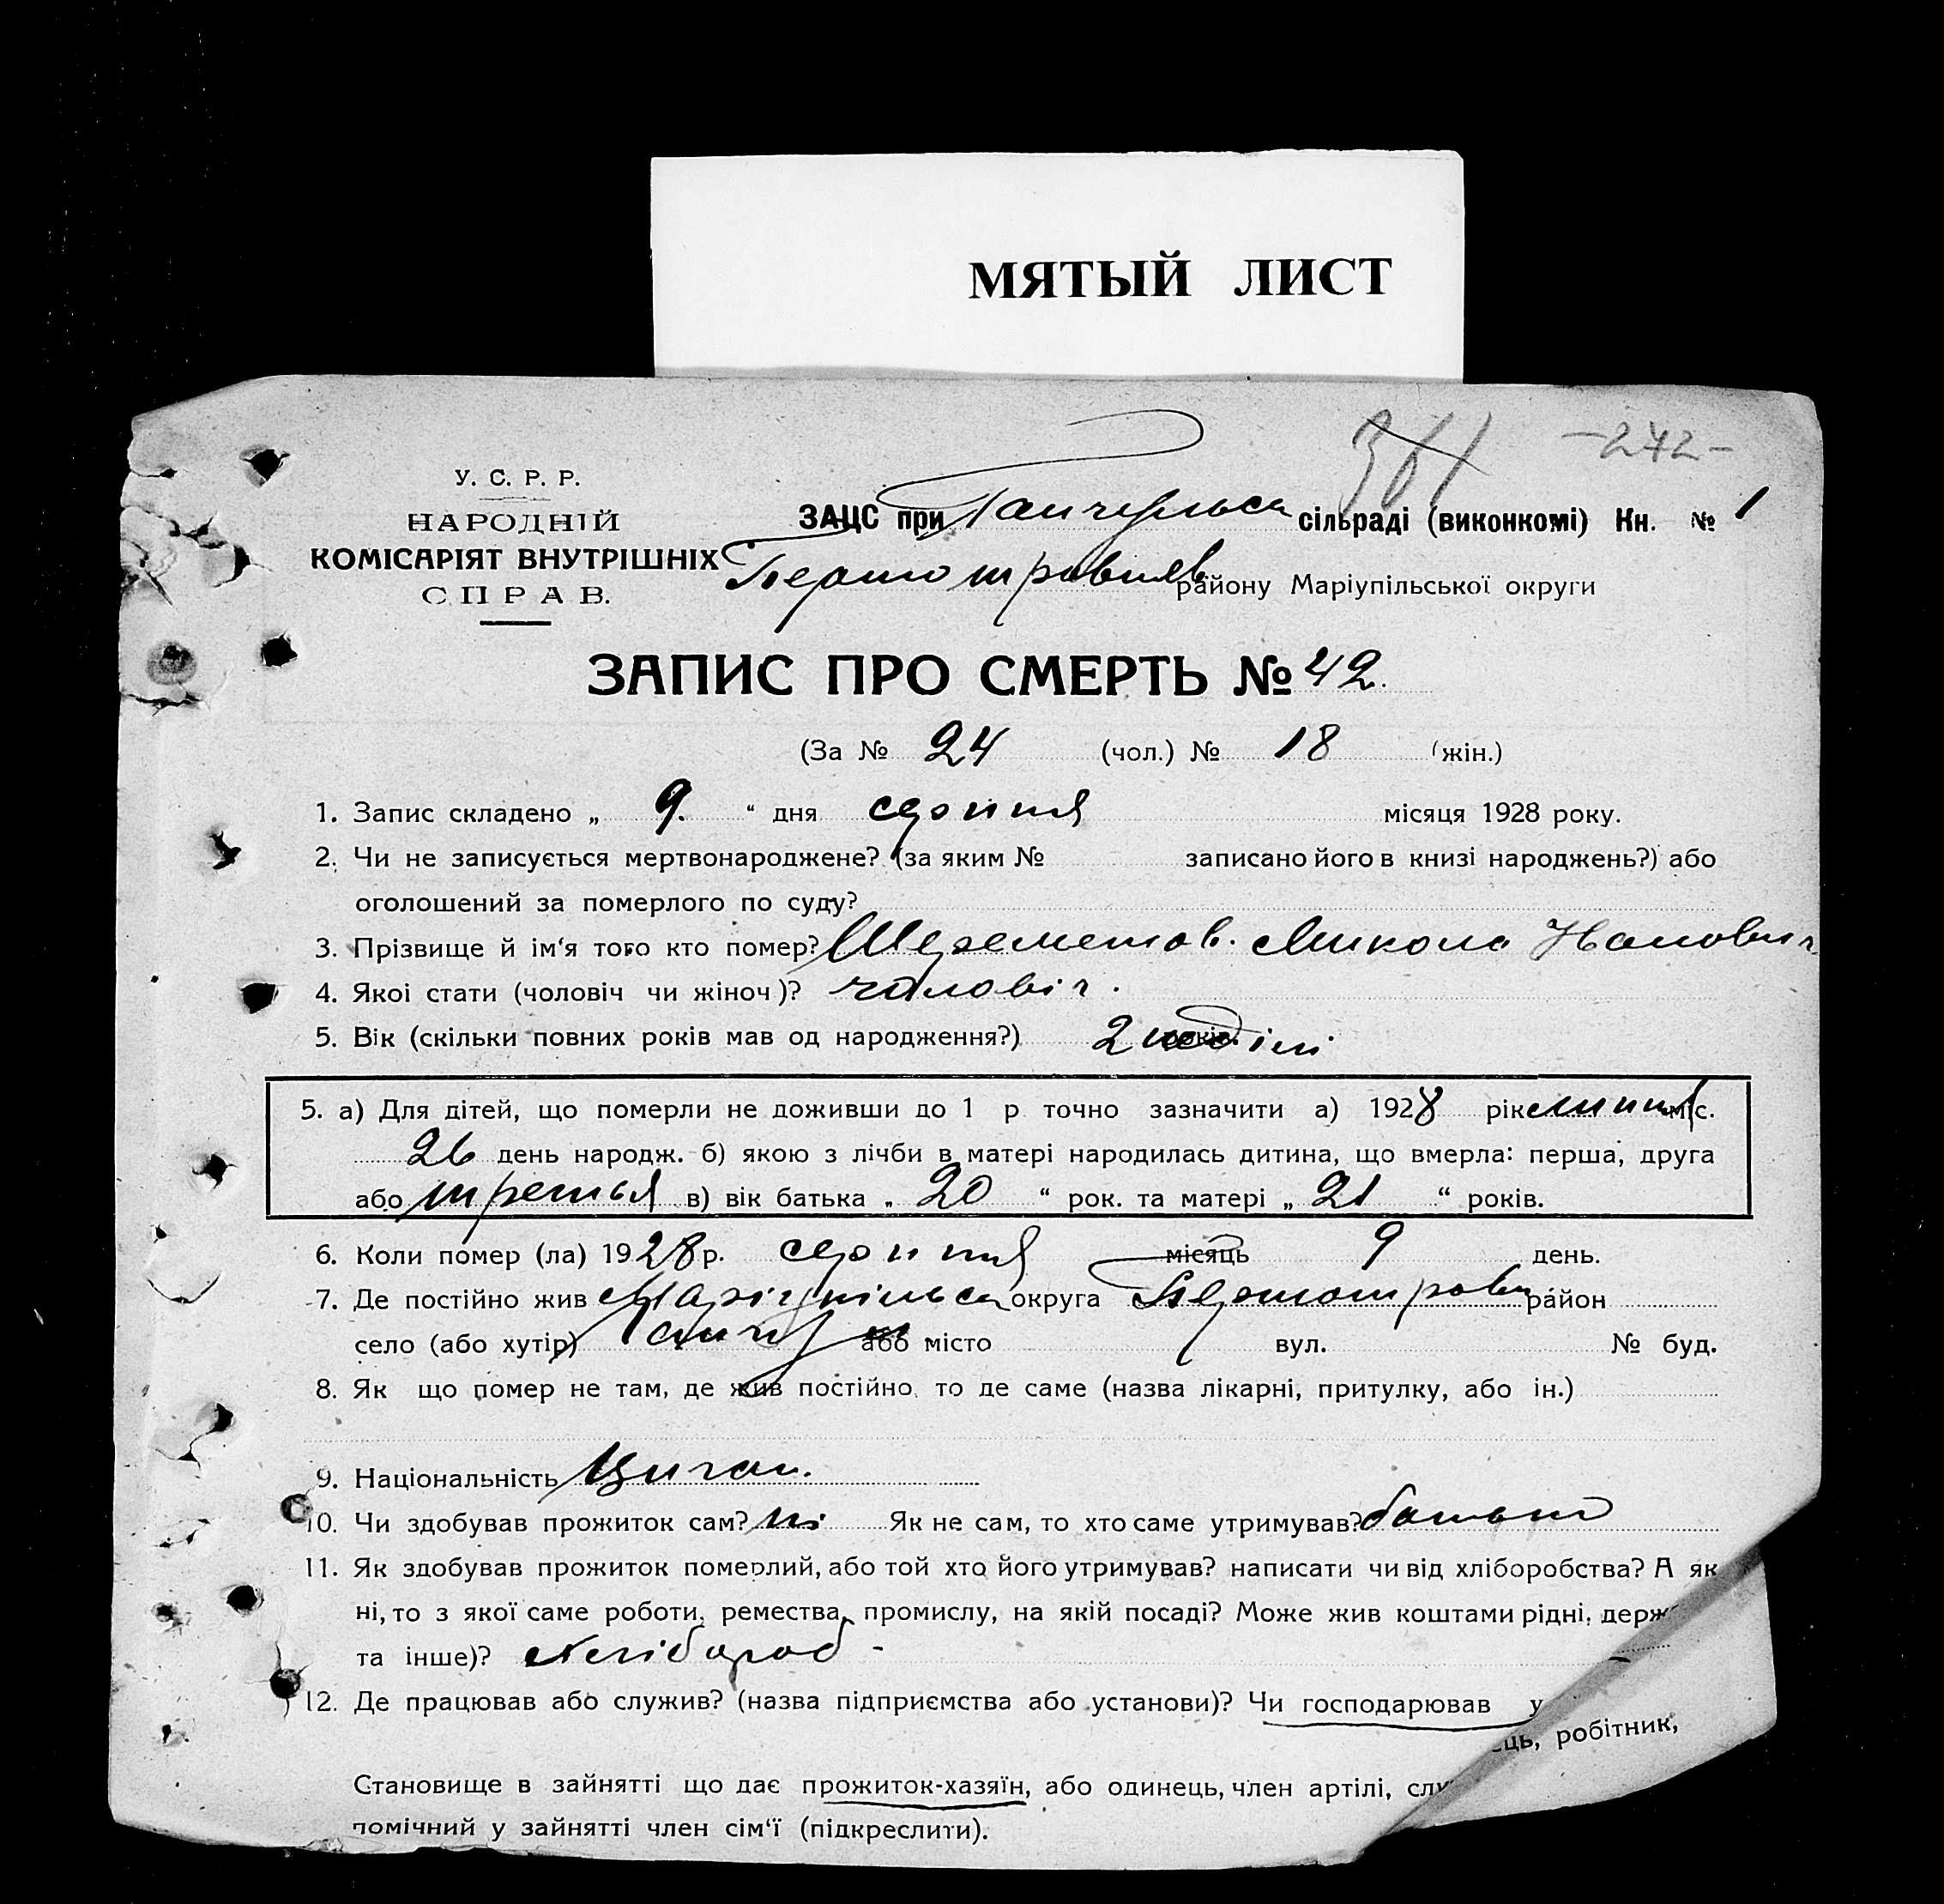 МЯТЫЙ ЛИСТ
-242-
У. С. Р. Р.
НАРОДНІЙ
КОМІСАРІЯТ ВНУТРІШНІХ
СПРАВ.
ЗАЦС при Ганчульськ сільраді (виконкомі) Кн. № 1
Першотравнев району Маріупільської округи
ЗАПИС ПРО СМЕРТЬ № 42.
(За № 24 (чол.) № 18 (жін.)
1. Запис складено „ 9. “ дня серпня місяця 1928 року.
2. Чи не записується мертвонароджене? (за яким № записано його в книзі народжень?) або
оголошений за померлого по суду?
3. Прізвище й ім'я того кто помер? Шереметов. Микола Іванович
4. Якої стати (чоловіч чи жіноч)? чоловіч.
5. Вік (скільки повних років мав од народження?) 2 неділі
5. а) Для дітей, що померли не доживши до 1 р точно зазначити а) 1928 рік липня міс.
26 день народж. б) якою з лічби в матері народилась дитина, що вмерла: перша, друга
або третья в) вік батька „ 20 “ рок. та матері „ 21 “ років.
6. Коли помер (ла) 1928 р. серпня місяць 9 день.
7. Де постійно жив Маріупільськ округа Першотравн район
село (або хутір) Ганчул або місто вул. № буд.
8. Як що помер не там, де жив постійно, то де саме (назва лікарні, притулку, або ін.)
9. Національність Циган.
10. Чи здобував прожиток сам? ні Як не сам, то хто саме утримував? батько
11. Як здобував прожиток померлий, або той хто його утримував? написати чи від хліборобства? А як
ні, то з якої саме роботи, ремества, промислу, на якій посаді? Може жив коштами рідні, держ
та інше)? Хлібороб -
12. Де працював або служив? (назва підприємства або установи)? Чи господарював у
ець, робітник,
Становище в зайнятті що дає прожиток-хазяїн, або одинець, член артілі, слу
помічний у зайнятті член сім'ї (підкреслити).